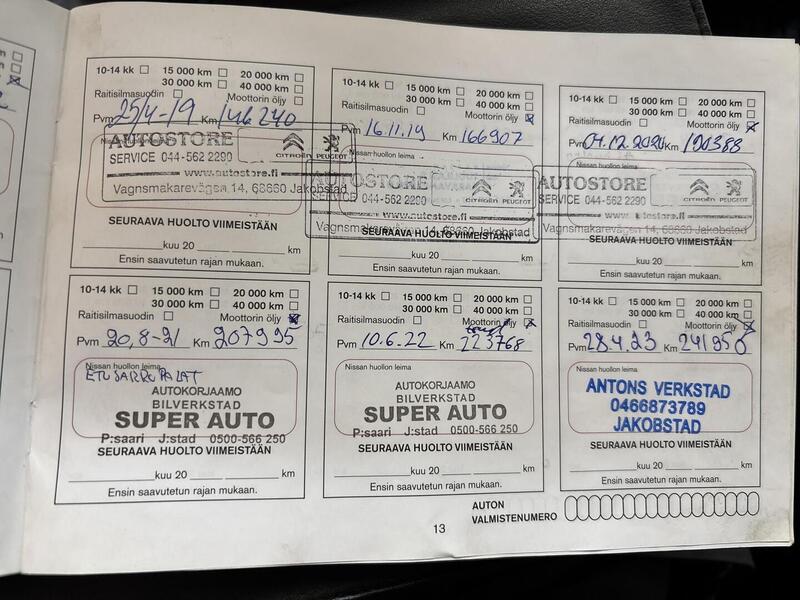 10-14 kk 15 000 km 20 000 km
30 000 km 40 000 km
Raitisilmasuodin Moottorin öljy
Pvm 25/4-19 Km 146240
Nissan huollon leima
AUTOSTORE
SERVICE 044-562 2290 CITROËN PEUGEOT
www.autostore.fi
Vagnsmakarevägen 14, 68660 Jakobstad
SEURAAVA HUOLTO VIIMEISTÄÄN
kuu 20 km
Ensin saavutetun rajan mukaan.
10-14 kk 15 000 km 20 000 km
30 000 km 40 000 km
Raitisilmasuodin Moottorin öljy
Pvm 16.11.19 Km 166907
Nissan huollon leima
AUTOSTORE
SERVICE 044-562 2290 CITROËN PEUGEOT
www.autostore.fi
Vagnsmakarevägen 14, 68660 Jakobstad
SEURAAVA HUOLTO VIIMEISTÄÄN
kuu 20 km
Ensin saavutetun rajan mukaan.
10-14 kk 15 000 km 20 000 km
30 000 km 40 000 km
Raitisilmasuodin Moottorin öljy
Pvm 04.12.2020 Km 190388
Nissan huollon leima
AUTOSTORE
SERVICE 044-562 2290 CITROËN PEUGEOT
www.autostore.fi
Vagnsmakarevägen 14, 68660 Jakobstad
SEURAAVA HUOLTO VIIMEISTÄÄN
kuu 20 km
Ensin saavutetun rajan mukaan.
10-14 kk 15 000 km 20 000 km
30 000 km 40 000 km
Raitisilmasuodin Moottorin öljy
Pvm 20,8-21 Km 207995
Nissan huollon leima
ETUJARRUPALAT
AUTOKORJAAMO
BILVERKSTAD
SUPER AUTO
P:saari J:stad 0500-566 250
SEURAAVA HUOLTO VIIMEISTÄÄN
kuu 20 km
Ensin saavutetun rajan mukaan.
10-14 kk 15 000 km 20 000 km
30 000 km 40 000 km
Raitisilmasuodin Moottorin öljy
Pvm 10.6.22 Km 223768
Nissan huollon leima
AUTOKORJAAMO
BILVERKSTAD
SUPER AUTO
P:saari J:stad 0500-566 250
SEURAAVA HUOLTO VIIMEISTÄÄN
kuu 20 km
Ensin saavutetun rajan mukaan.
10-14 kk 15 000 km 20 000 km
30 000 km 40 000 km
Raitisilmasuodin Moottorin öljy
Pvm 28.4.23 Km 241950
Nissan huollon leima
ANTONS VERKSTAD
0466873789
JAKOBSTAD
SEURAAVA HUOLTO VIIMEISTÄÄN
kuu 20 km
Ensin saavutetun rajan mukaan.
AUTON
VALMISTENUMERO
13